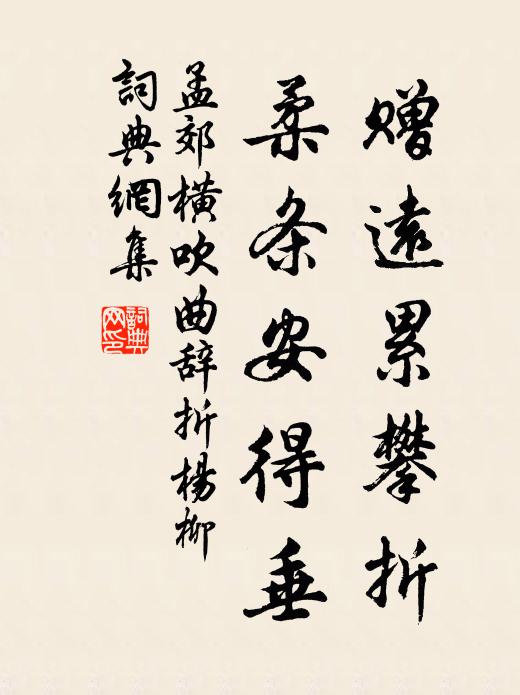 赠遠累攀折
柔条安得垂
孟郊横吹曲辞折楊柳
詞典網集
詞典
网印